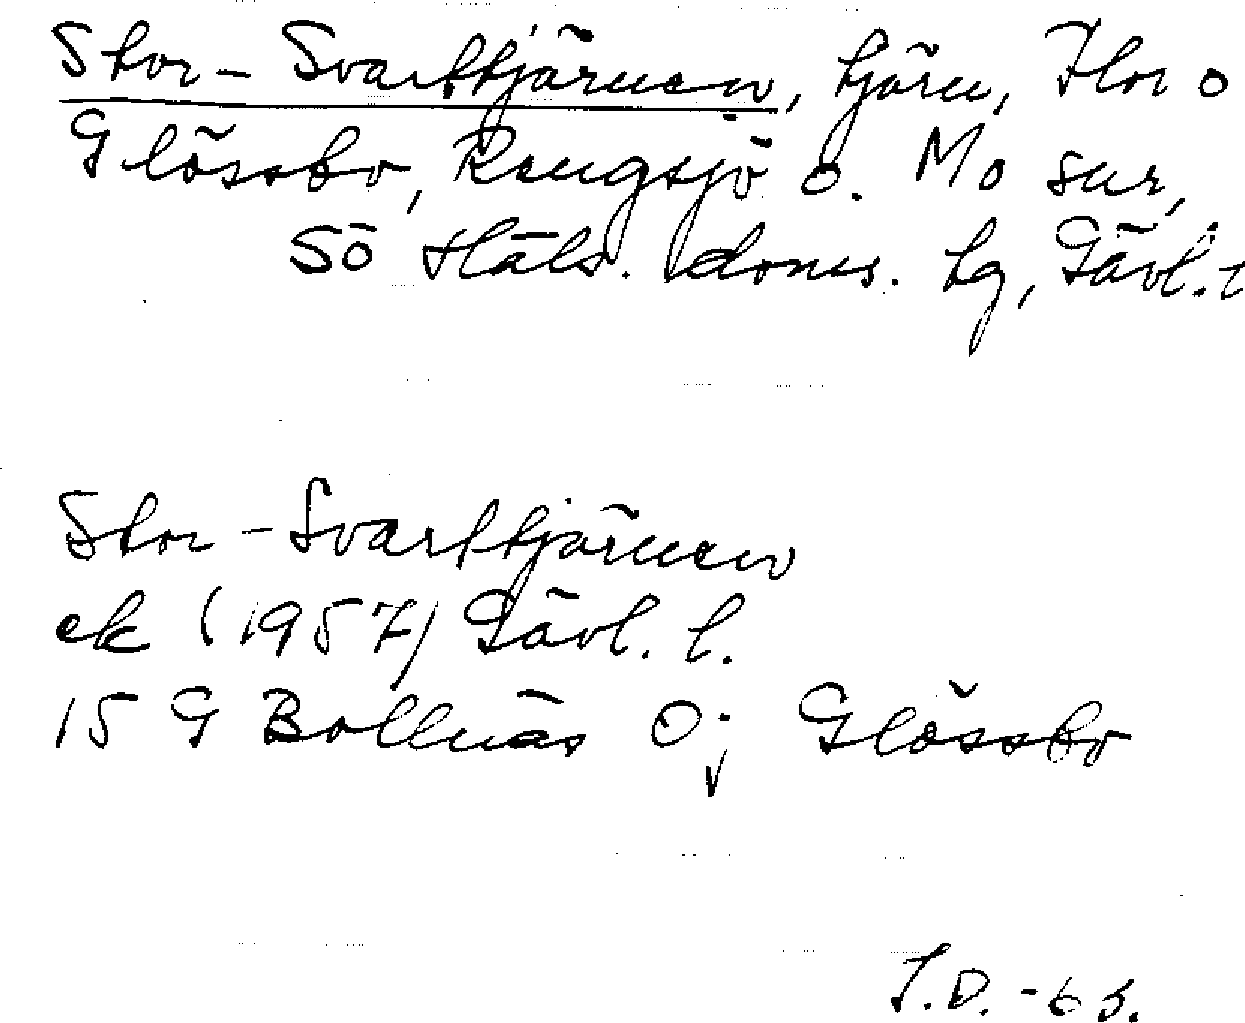 Stor-Svarttjärnen, tjärn, Flor o
Glössbo, Rengsjö o. Mo snr,
SÖ Häls. doms. lg, Gävl. l
Stor-Svarttjärnen
ek (1957) Gävl. l.
15 G Bollnäs O; Glössbo
S.D. -63.